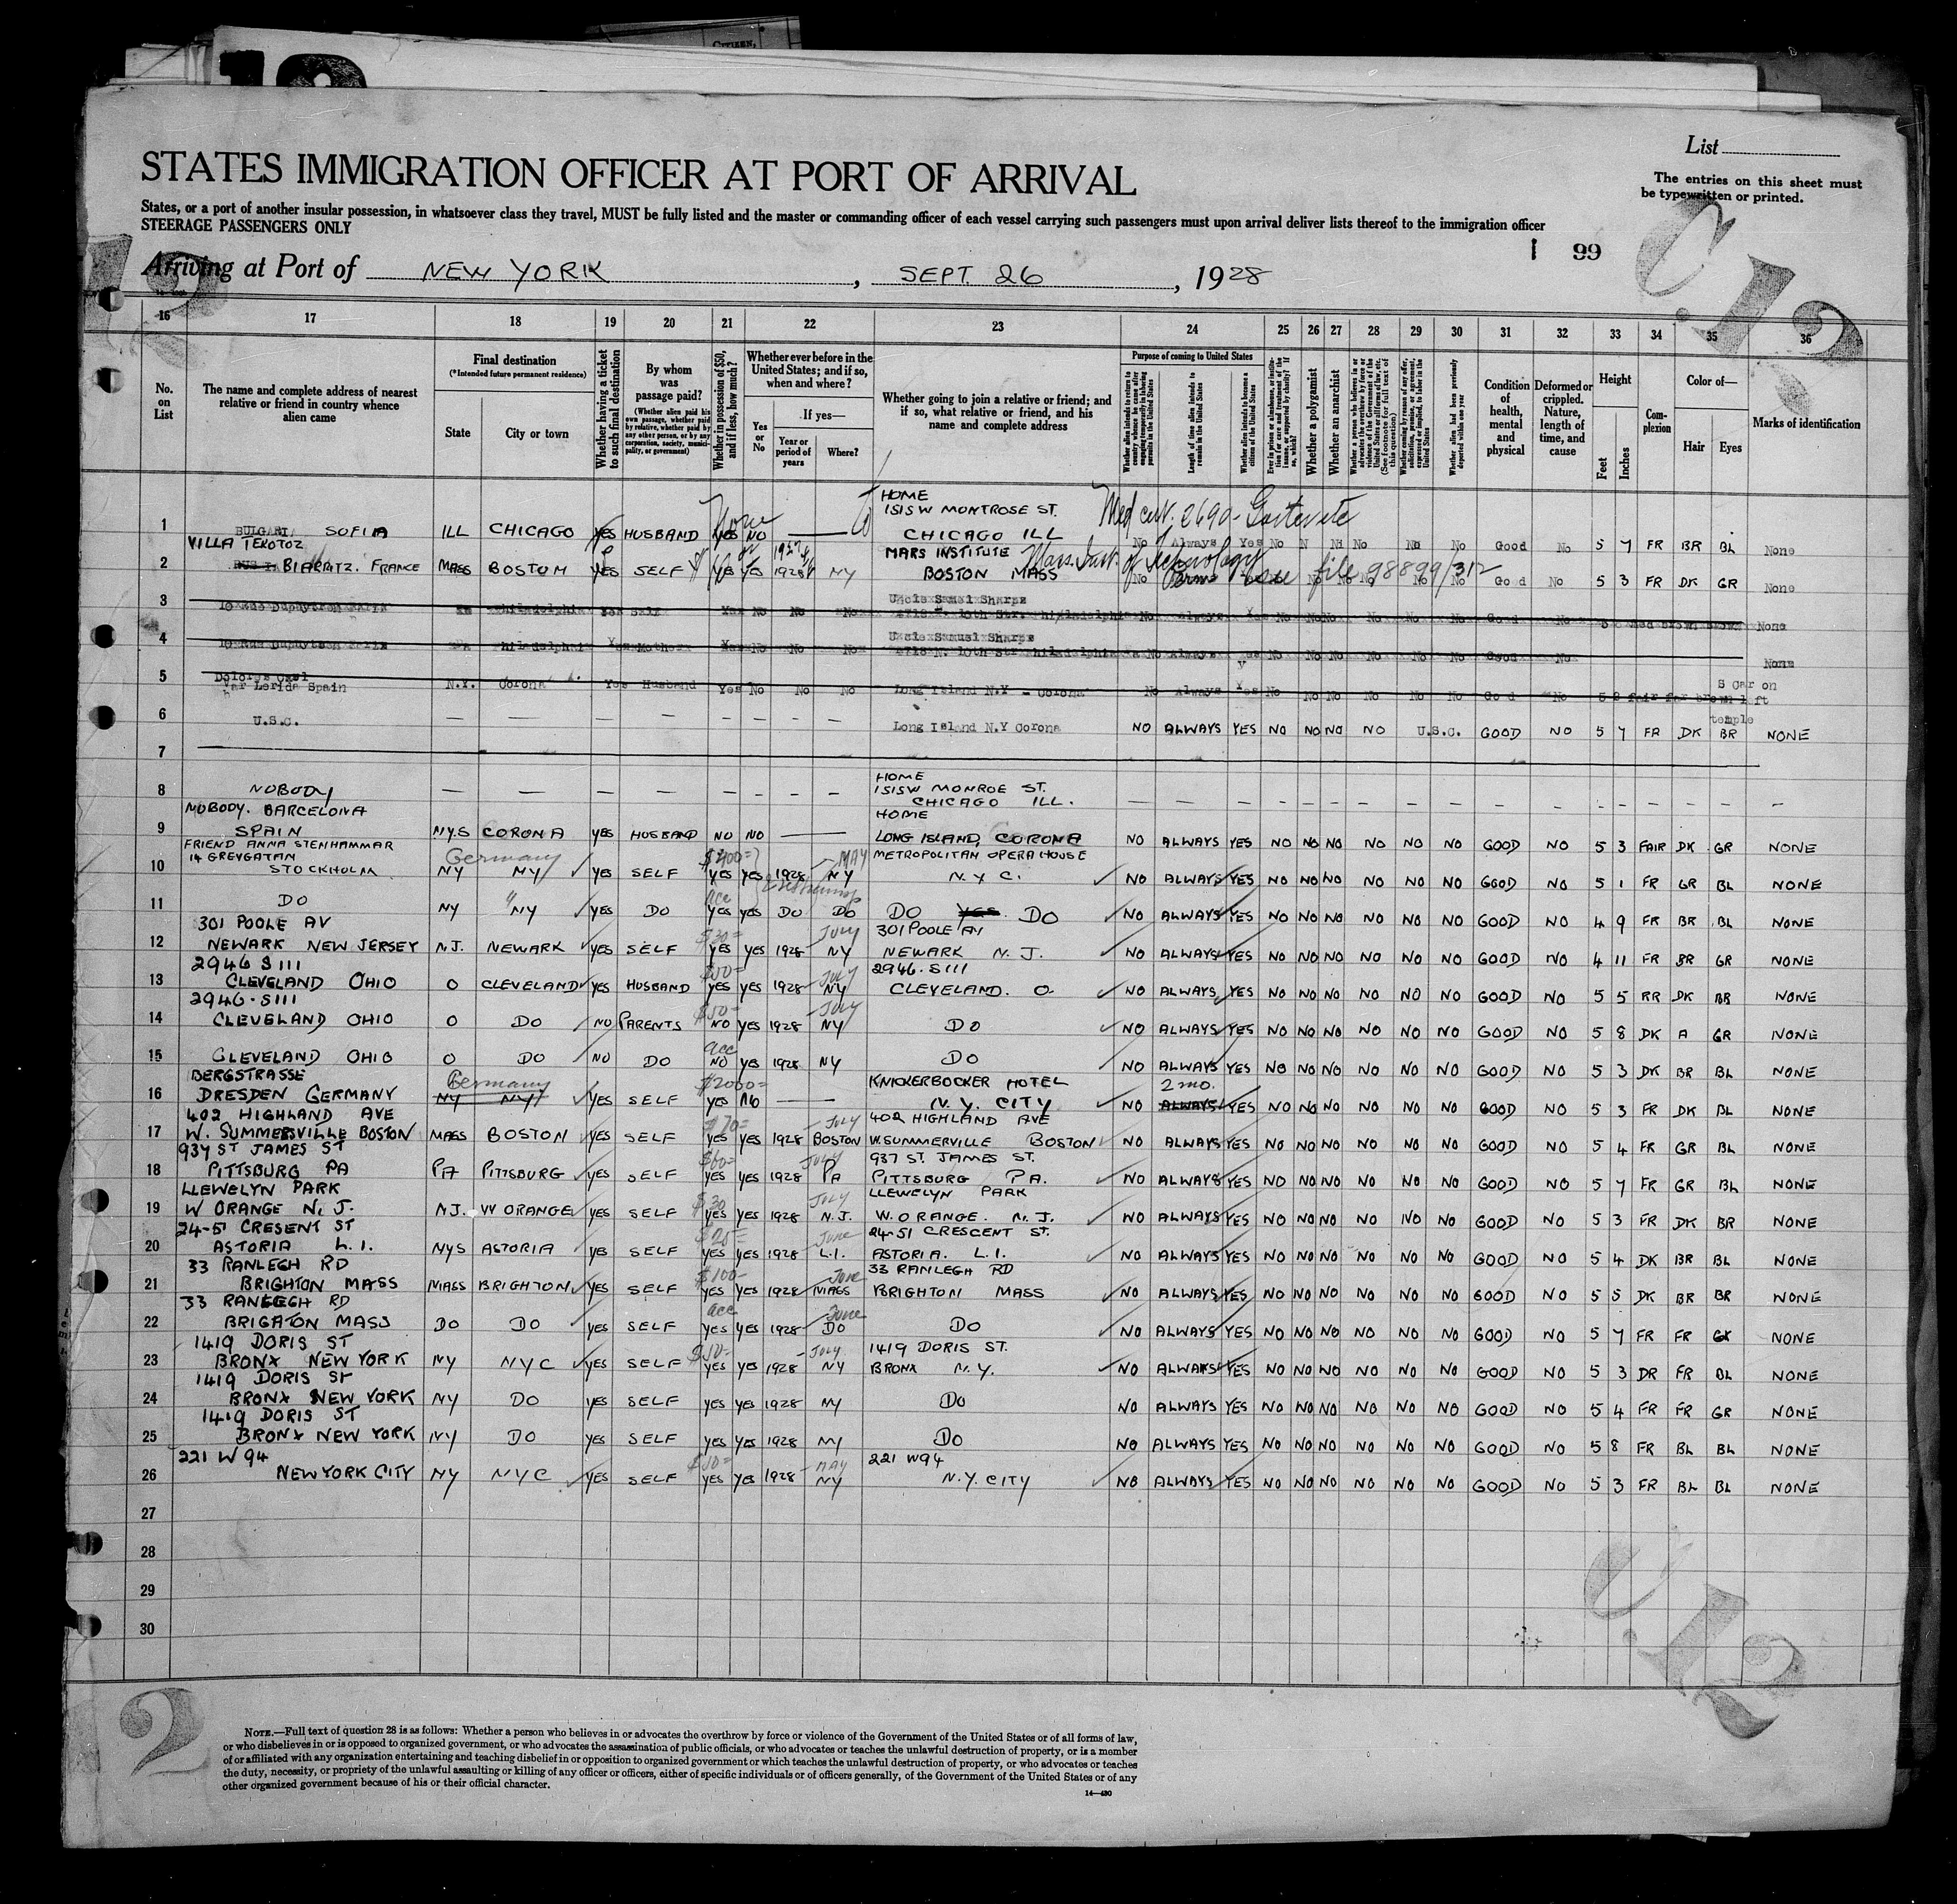 CITIZEN,
List
STATES IMMIGRATION OFFICER AT PORT OF ARRIVAL
The entries on this sheet must
be typewritten or printed.
States, or a port of another insular possession, in whatsoever class they travel, MUST be fully listed and the master or commanding officer of each vessel carrying such passengers must upon arrival deliver lists thereof to the immigration officer
STEERAGE PASSENGERS ONLY
1 99
Arriving at Port of NEW YORK, SEPT. 26, 1928
16 17 18 19 20 21 22 23 24 25 26 27 28 29 30 31 32 33 34 35 36
No. on List
The name and complete address of nearest relative or friend in country whence alien came
Final destination
(*Intended future permanent residence)
State
City or town
Whether having a ticket to such final destination
By whom was passage paid?
(Whether alien paid his own passage, whether paid by relative, whether paid by any other person, or by any corporation, society, municipality, or government)
Whether in possession of $50, and if less, how much?
Whether ever before in the United States; and if so, when and where?
Yes or No
If yes—
Year or period of years
Where?
Whether going to join a relative or friend; and if so, what relative or friend, and his name and complete address
Purpose of coming to United States
Whether alien intends to return to country whence he came after engaging temporarily in laboring pursuits in the United States
Length of time alien intends to remain in the United States
Whether alien intends to become a citizen of the United States
Ever in prison or almshouse, or institution for care and treatment of the insane, or supported by charity? If so, which?
Whether a polygamist
Whether an anarchist
Whether alien had been previously deported within one year
Condition of health, mental and physical
Deformed or crippled. Nature, length of time, and cause
Height
Feet
Inches
Complexion
Color of—
Hair
Eyes
Marks of identification
HOME
1515W MONTROSE ST.
1 BULGARIA SOFIA ILL CHICAGO YES HUSBAND YES NO CHICAGO ILL No Always Yes No N No No No No Good No 5 7 FR BR BL None
VILLA TEKOTOZ
MARS INSTITUTE Mass. Inst. of Technology
2 BIARRITZ. FRANCE MASS BOSTON YES SELF YES YES 1928 NY BOSTON MASS No see file 98899/312 Good No 5 3 FR DK GR None
Uncle Samel Sharps
3 Philadelphia Yes Self Yes No No No No Always Yes No No No No No No Good No None
Uncle Samuel Sharps
4 Philadelphia Yes Mother Yes No No No No Always Yes No No No No No No Good No None
5 Lerida Spain N.Y. Corona Yes Husband Yes No No No Long Island N.Y - Corona No Always Yes No No No No No No Good No 5 S car on left temple
6 U.S.C. — — — — — — — — Long Island N.Y Corona NO ALWAYS YES NO NO NO NO U.S.C. GOOD NO 5 7 FR DK BR NONE
7
HOME
1515W MONROE ST.
8 NOBODY — — — — — — — — CHICAGO ILL.
NOBODY. BARCELONA HOME
9 SPAIN NY.S CORONA YES HUSBAND NO NO LONG ISLAND, CORONA NO ALWAYS YES NO NO NO NO NO NO GOOD NO 5 3 FAIR DK GR NONE
FRIEND ANNA STENHAMMAR
14 GREVGATAN Germany $400= MAY METROPOLITAN OPERA HOUSE
10 STOCKHOLM NY NY YES SELF YES YES 1928 NY N.Y C. NO ALWAYS YES NO NO NO NO NO NO GOOD NO 5 1 FR GR BL NONE
11 DO NY " NY YES DO acc YES YES DO DO DO YES DO NO ALWAYS YES NO NO NO NO NO NO GOOD NO 4 9 FR BR BL NONE
301 POOLE AV July 301 POOLE AV
12 NEWARK NEW JERSEY N.J. NEWARK YES SELF YES YES 1928 NY NEWARK N.J. NO ALWAYS YES NO NO NO NO NO NO GOOD NO 4 11 FR BR GR NONE
2946 S111 July 2946.S111
13 CLEVELAND OHIO O CLEVELAND YES HUSBAND YES YES 1928 NY CLEVELAND. O. NO ALWAYS YES NO NO NO NO NO NO GOOD NO 5 5 RR DK BR NONE
2946.S111 $50= July
14 CLEVELAND OHIO O DO NO PARENTS NO YES 1928 NY DO NO ALWAYS YES NO NO NO NO NO NO GOOD NO 5 8 DK A GR NONE
15 CLEVELAND OHIO O DO NO DO acc NO YES 1928 NY DO NO ALWAYS YES NO NO NO NO NO NO GOOD NO 5 3 DK BR BL NONE
BERGSTRASSE Germany $2000= KNICKERBOCKER HOTEL 2 mo.
16 DRESDEN GERMANY NY NY YES SELF YES NO — — N.Y. CITY NO ALWAYS YES NO NO NO NO NO NO GOOD NO 5 3 FR DK BL NONE
402 HIGHLAND AVE $70= July 402 HIGHLAND AVE
17 W. SUMMERSVILLE BOSTON MASS BOSTON YES SELF YES YES 1928 BOSTON W.SUMMERVILLE BOSTON NO ALWAYS YES NO NO NO NO NO NO GOOD NO 5 4 FR GR BL NONE
937 ST JAMES ST $60= JULY 937 ST. JAMES ST.
18 PITTSBURG PA PA PITTSBURG YES SELF YES YES 1928 PA PITTSBURG PA. NO ALWAYS YES NO NO NO NO NO NO GOOD NO 5 7 FR GR BL NONE
LLEWELYN PARK $30 JULY LLEWELYN PARK
19 W ORANGE N.J. N.J. W ORANGE YES SELF YES YES 1928 N.J. W.ORANGE. N.J. NO ALWAYS YES NO NO NO NO NO NO GOOD NO 5 3 FR DK BR NONE
24-51 CRESENT ST June 24-51 CRESCENT ST.
20 ASTORIA L.I. NYS ASTORIA YES SELF YES YES 1928 L.I. ASTORIA. L.I. NO ALWAYS YES NO NO NO NO NO NO GOOD NO 5 4 DK BR BL NONE
33 RANLEGH RD $100- June 33 RANLEGH RD
21 BRIGHTON MASS MASS BRIGHTON YES SELF YES YES 1928 MASS BRIGHTON MASS NO ALWAYS YES NO NO NO NO NO NO GOOD NO 5 5 DK BR BR NONE
33 RANLEGH RD acc June
22 BRIGATON MASS DO DO YES SELF YES YES 1928 DO DO NO ALWAYS YES NO NO NO NO NO NO GOOD NO 5 7 FR FR NONE
1419 DORIS ST $50- July 1419 DORIS ST.
23 BRONX NEW YORK NY NYC YES SELF YES YES 1928 NY BRONX N.Y. NO ALWAYS YES NO NO NO NO NO NO GOOD NO 5 3 DR FR BL NONE
1419 DORIS ST
24 BRONX NEW YORK NY DO YES SELF YES YES 1928 NY DO NO ALWAYS YES NO NO NO NO NO NO GOOD NO 5 4 FR FR GR NONE
1419 DORIS ST
25 BRONX NEW YORK NY DO YES SELF YES YES 1928 NY DO NO ALWAYS YES NO NO NO NO NO NO GOOD NO 5 8 FR BL BL NONE
221 W 94 MAY 221 W94
26 NEW YORK CITY NY NYC YES SELF YES YES 1928 NY N.Y. CITY NO ALWAYS YES NO NO NO NO NO NO GOOD NO 5 3 FR BL BL NONE
27
28
29
30
C.12
2
NOTE.—Full text of question 28 is as follows: Whether a person who believes in or advocates the overthrow by force or violence of the Government of the United States or of all forms of law,
or who disbelieves in or is opposed to organized government, or who advocates the assassination of public officials, or who advocates or teaches the unlawful destruction of property, or is a member
of or affiliated with any organization entertaining and teaching disbelief in or opposition to organized government or which teaches the unlawful destruction of property, or who advocates or teaches
the duty, necessity, or propriety of the unlawful assaulting or killing of any officer or officers, either of specific individuals or of officers generally, of the Government of the United States or of any
other organized government because of his or their official character.
14—430